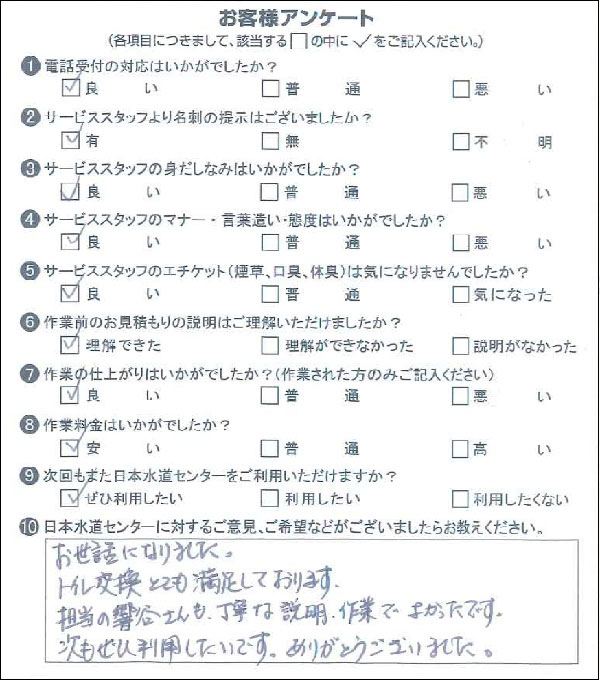 お客様アンケート
(各項目につきまして、該当する□の中に✓をご記入ください。)
❶電話受付の対応はいかがでしたか？
☑良い □普通 □悪い
❷サービススタッフより名刺の提示はございましたか？
☑有 □無 □不明
❸サービススタッフの身だしなみはいかがでしたか？
☑良い □普通 □悪い
❹サービススタッフのマナー・言葉遣い・態度はいかがでしたか？
☑良い □普通 □悪い
❺サービススタッフのエチケット(煙草、口臭、体臭)は気になりませんでしたか？
☑良い □普通 □気になった
❻作業前のお見積もりの説明はご理解いただけましたか？
☑理解できた □理解ができなかった □説明がなかった
❼作業の仕上がりはいかがでしたか？(作業された方のみご記入ください)
☑良い □普通 □悪い
❽作業料金はいかがでしたか？
☑安い □普通 □高い
❾次回もまた日本水道センターをご利用いただけますか？
☑ぜひ利用したい □利用したい □利用したくない
❿日本水道センターに対するご意見、ご希望などがございましたらお教えください。
お世話になりました。
トイレ交換とても満足しております。
担当の響谷さんも、丁寧な説明、作業でよかったです。
次もぜひ利用したいです。ありがとうございました。